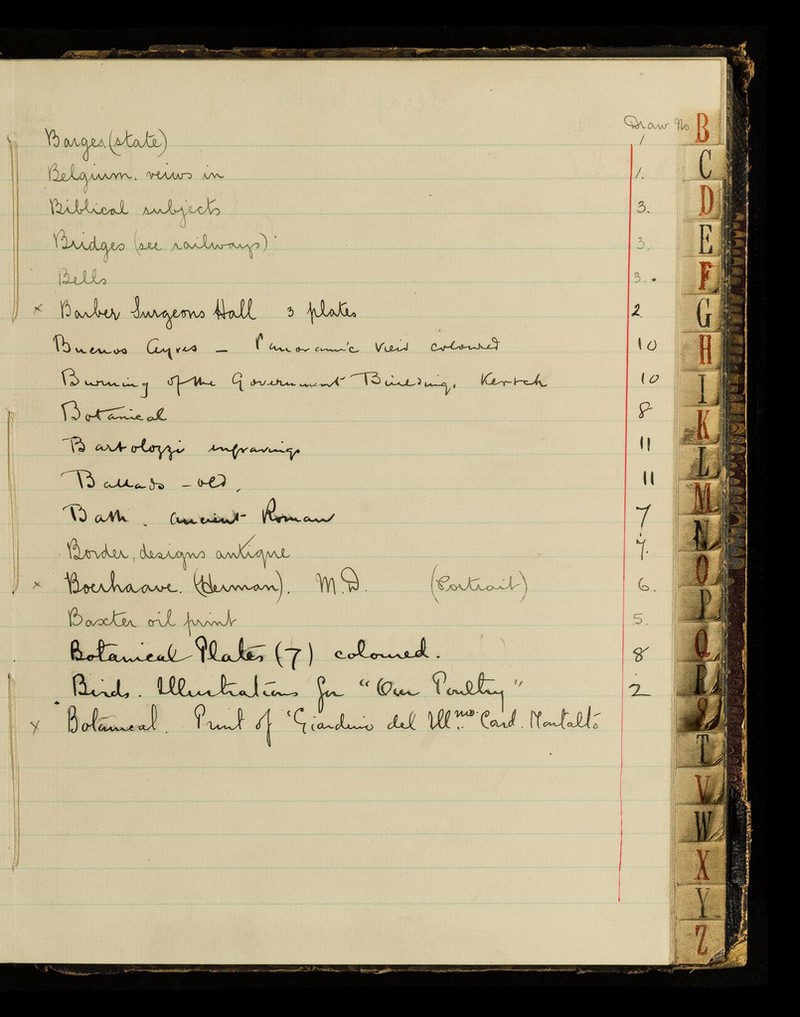 Draw No B
Barges. (state) 1
Belgium. veiws in 1. C
Biblical subjects 3. D
Bridges (see railways) 3. E
Bells 3. F
x Barber Surgeons Hall 3 plates 2. G
Buenos Ayres — Panoramic View coloured 10 H
Burning of the Government Building, Kertch 10 I
Botanical 8 K
Bartolozzi engravings 11 L
Ballads - old, 11 M
Bath. ancient Roman 7 N
Border, designs antique 7. O
x Boerhaave. (Herman). M.D. (Portrait) 6. P
Baxter oil print 5. Q
Botanical Plates (7) coloured. 8 R
Birds. Illustrations for "Our Poultry" 2 S
x Botanical. Print of 'Giardino del Ill.mo Card. Montalto
T
V
W
X
Y
Z